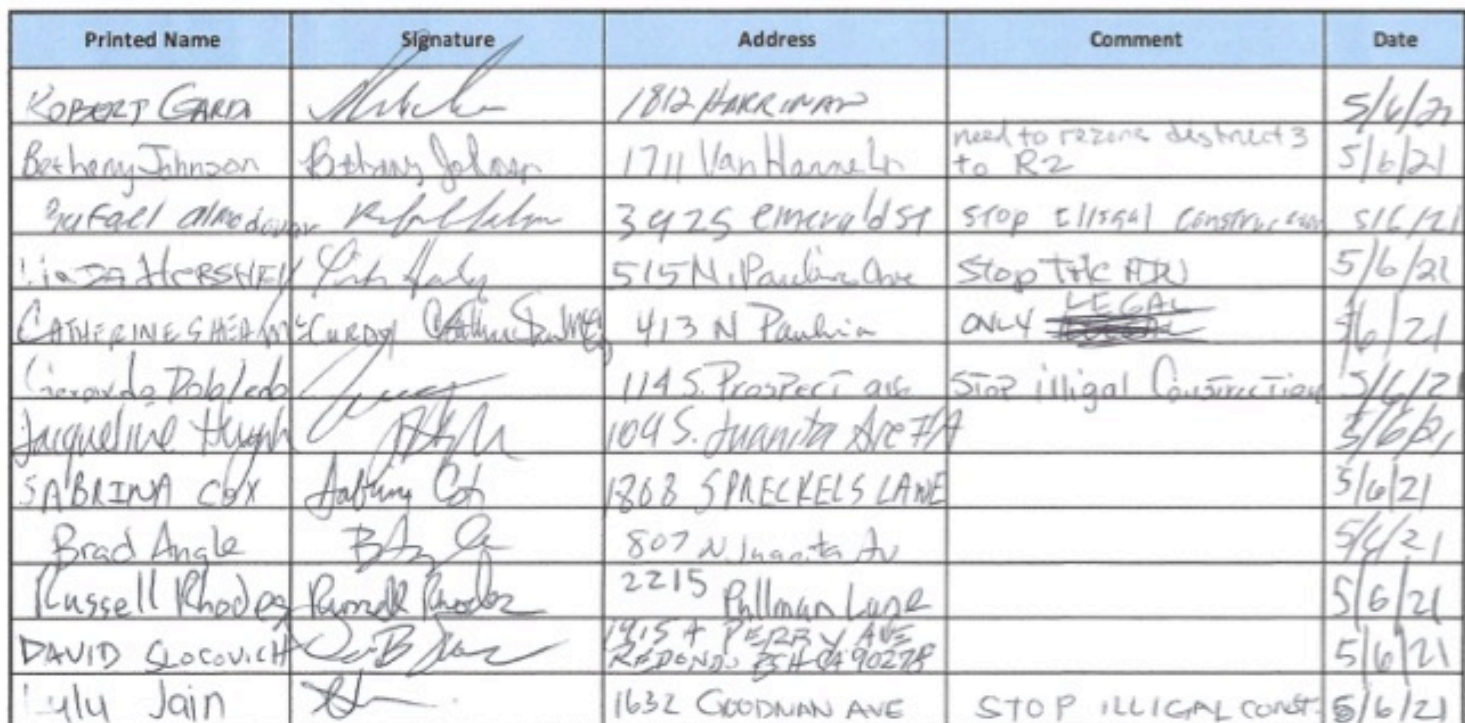 Printed Name Signature Address Comment Date
ROBERT GARD 1812 HARRIMAN 5/6/21
need to rezone destrict 3
Bethany Johnson Bethany Johnson 1711 Van Horne Ln to R2 5/6/21
Rafael almodovar 3925 emerald st stop illigal construction 5/6/21
LINDA HERSHEY 515 N. Paulina Ave Stop THE ADU 5/6/21
CATHERINE SHEA McCURDY 413 N Paulina ONLY LEGAL 5/6/21
Gerardo Dobledo 114 S. Prospect ave Stop illigal Construction 5/6/21
Jacqueline Huynh 104 S. Juanita Ave #A 5/6/21
SABRINA COX Sabrina Cox 1808 SPRECKELS LANE 5/6/21
Brad Angle 807 N. Juanita Av 5/6/21
Russell Rhodes Russell Rhodes 2215 Pullman Lane 5/6/21
DAVID SLOCOVICH 1915 A PERRY AVE
REDONDO BCH CA 90278 5/6/21
Lulu Jain 1632 GOODMAN AVE STOP ILLIGAL CONST. 5/6/21